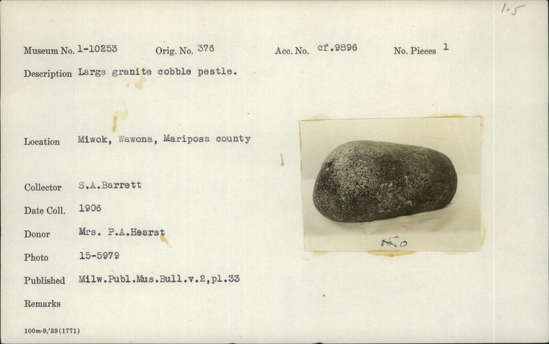 1-5
Museum No. 1-10253 Orig. No. 376 Acc. No. cf.9896 No. Pieces 1
Description Large granite cobble pestle.
Location Miwok, Wawona, Mariposa county
Collector S.A.Barrett
Date Coll. 1906
Donor Mrs. P.A.Hearst
Photo 15-5979
Published Milw.Publ.Mus.Bull.v.2,pl.33
Remarks
100m-9,'29(1771)